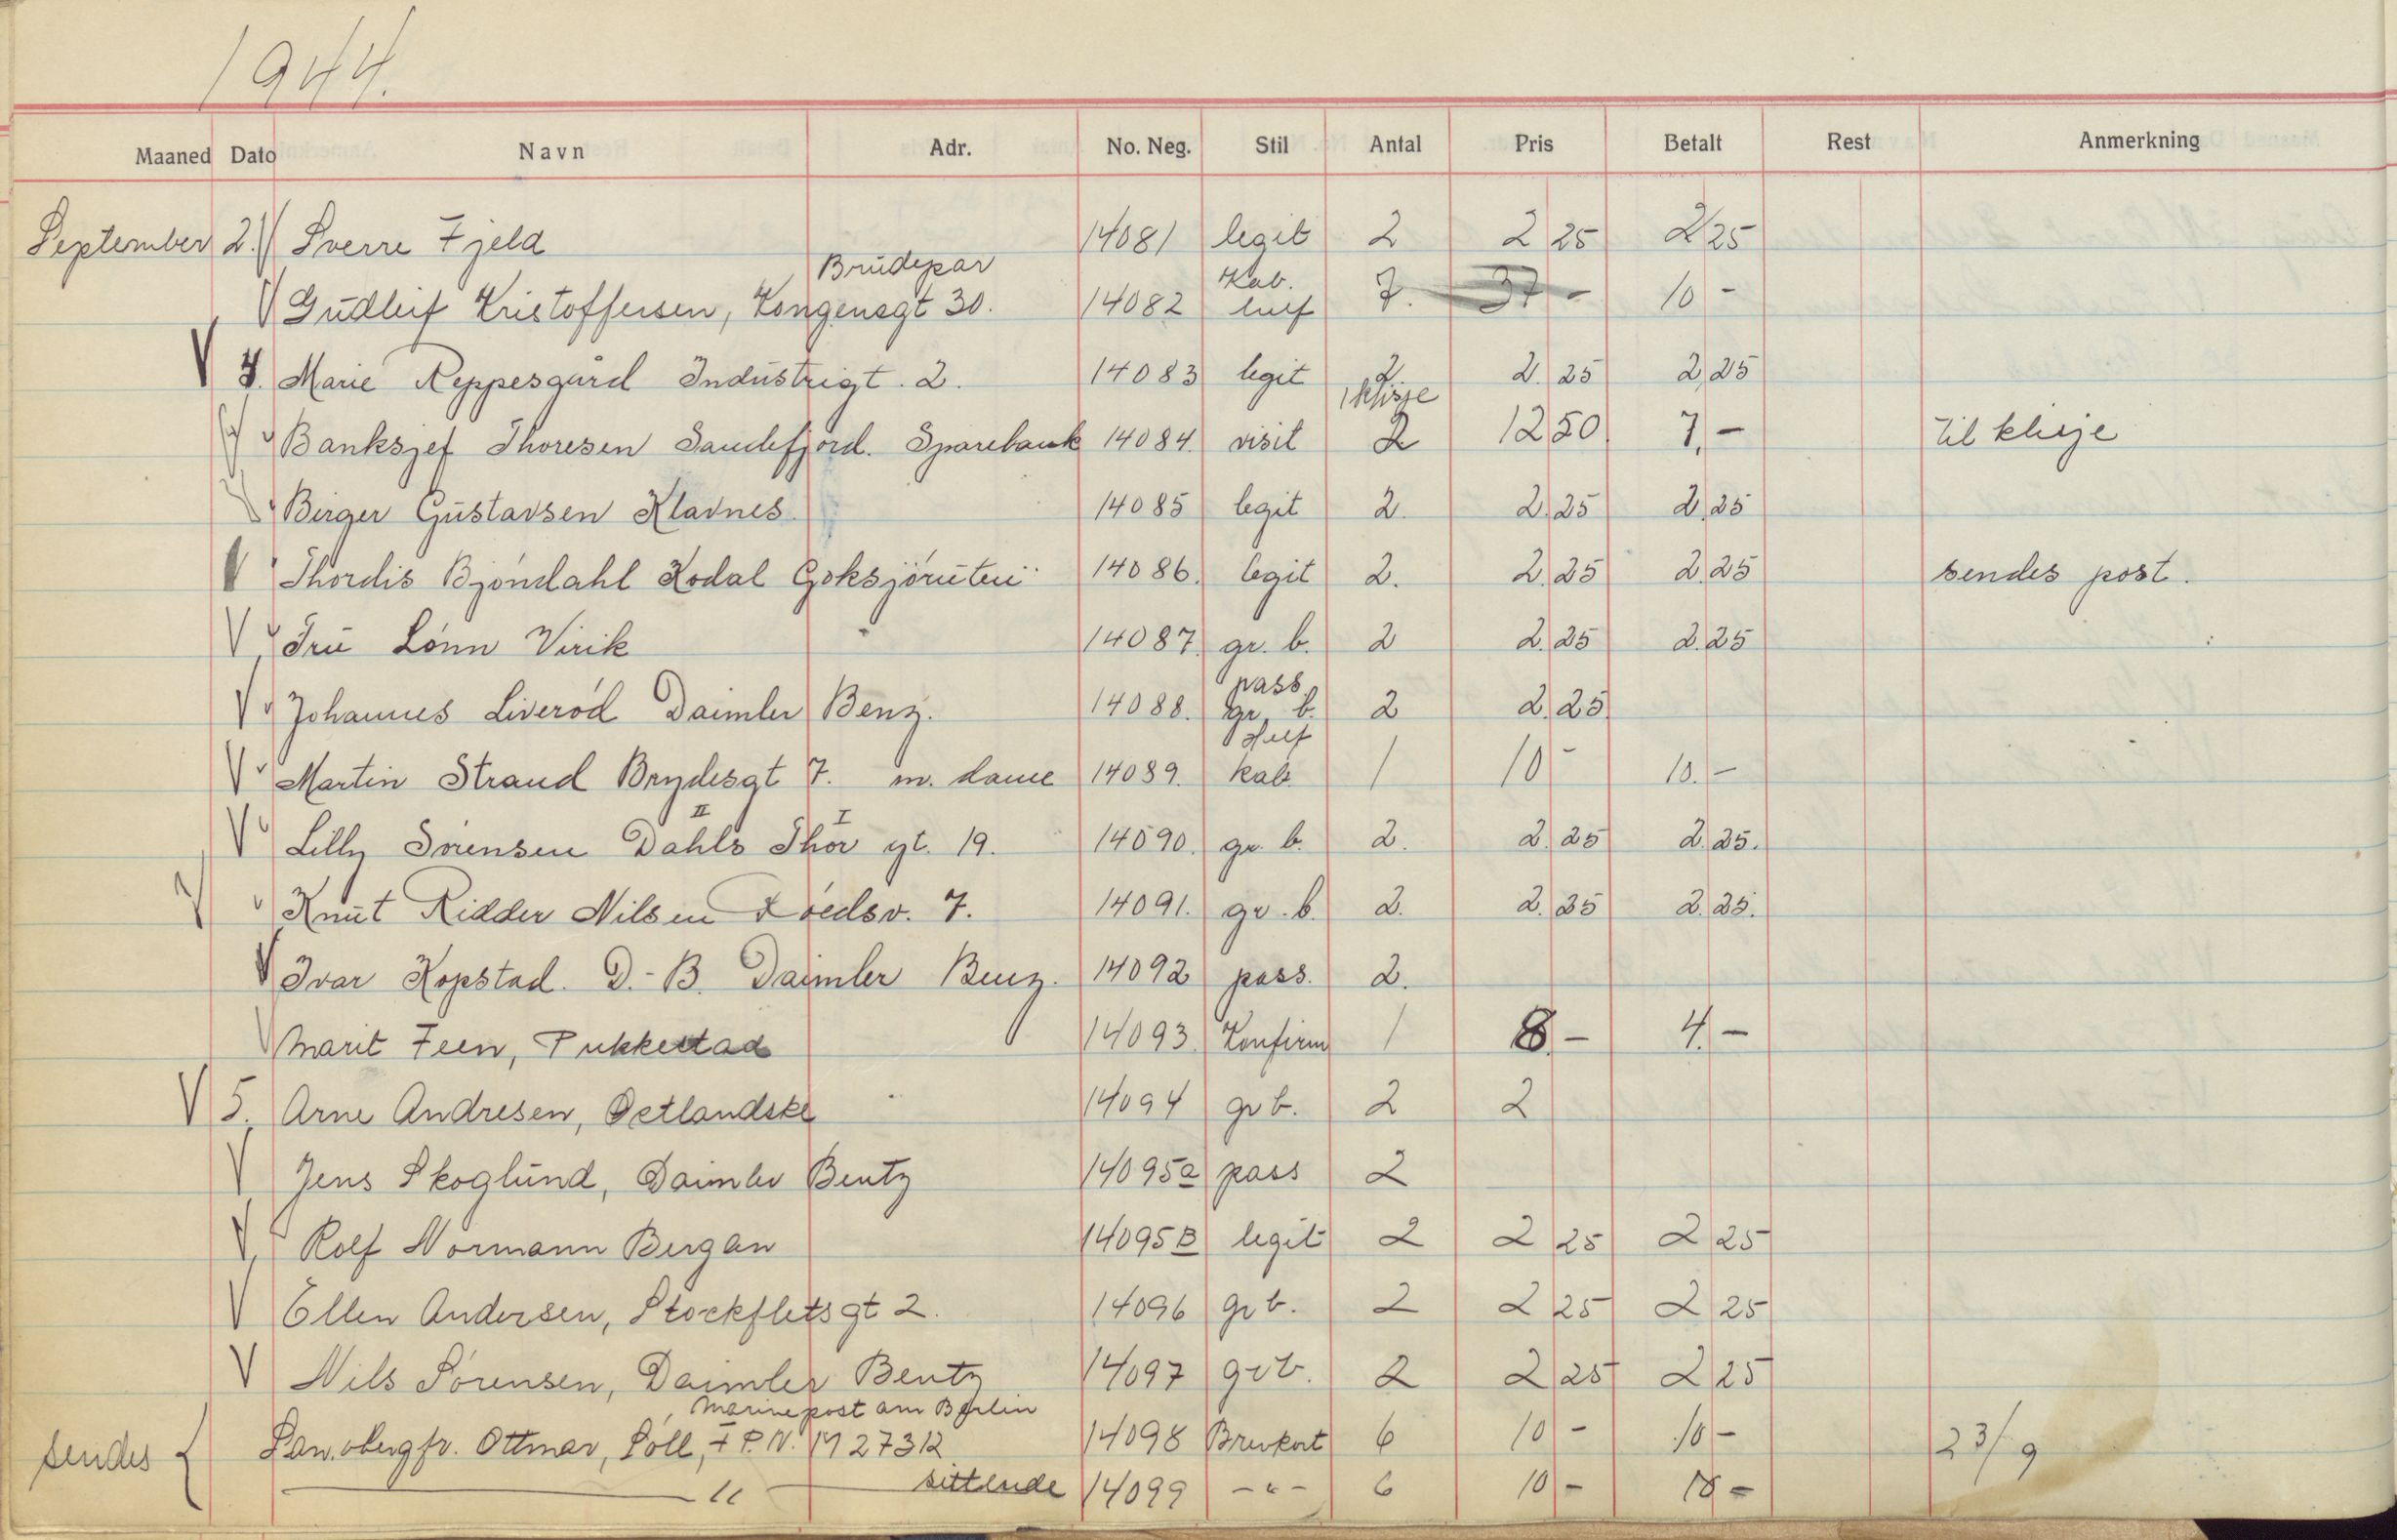 1944.
Maaned Dato Navn Adr. No. Neg. Stil Antal Pris Betalt Rest Anmerkning
September 2. Sverre Fjeld 14081 legit 2 2 25 2 25
Brudepar Kab.
Gudleif Kristoffersen, Kongensgt 30. 14082 7. 37 - 10 -
4. Marie Reppesgård Industrigt. 2. 14083 legit 2 2. 25 2,25
1 klisje
Banksjef Thoresen Sandefjord. Sparebank 14084. visit 2 12 50 7,- til klisje
Birger Gustavsen Klavnes 14085 legit 2. 2.25 2.25
Thordis Bjöndahl Kodal Goksjöruten 14086. legit 2. 2.25 2.25 sendes post.
Fru Lönn Virik 14087. gr. b. 2 2.25 2.25
pass
Johannes Liveröd Daimler Benz. 14088. gr. b. 2 2.25
Martin Strand Brydesgt 7. m. dame 14089. kab. 1 10 - 10.-
II I
Lilly Sörensen Dahls Thor gt. 19. 14090. gr. b. 2. 2.25 2.25.
Knut Ridder Nilsen 7. 14091. gr. b. 2. 2.25 2.25.
Ivar Kopstad. D.-B. Daimler Benz. 14092 pass. 2.
Marit Feen, Pukkestad 14093. Konfirm 1 8.- 4.-
5. Arne Andresen, Östlandske 14094 gr b. 2 2
Jens Skoglund, Daimler Bentz 14095a pass 2
Rolf Normann Bergan 14095B legit 2 2 25 2 25
Ellen Andersen, Stockfletsgt 2. 14096 gr b. 2 2 25 2 25
Nils Sörensen, Daimler Bentz 14097 gr b. 2 2 25 2 25
Marinepost am Berlin
sendes { Ottmar, Söll, F.P.N. M 27312 14098 Brevkort 6 10 - 10 - 23/9
— " — sittende 14099 -"- 6 10 - 10 -